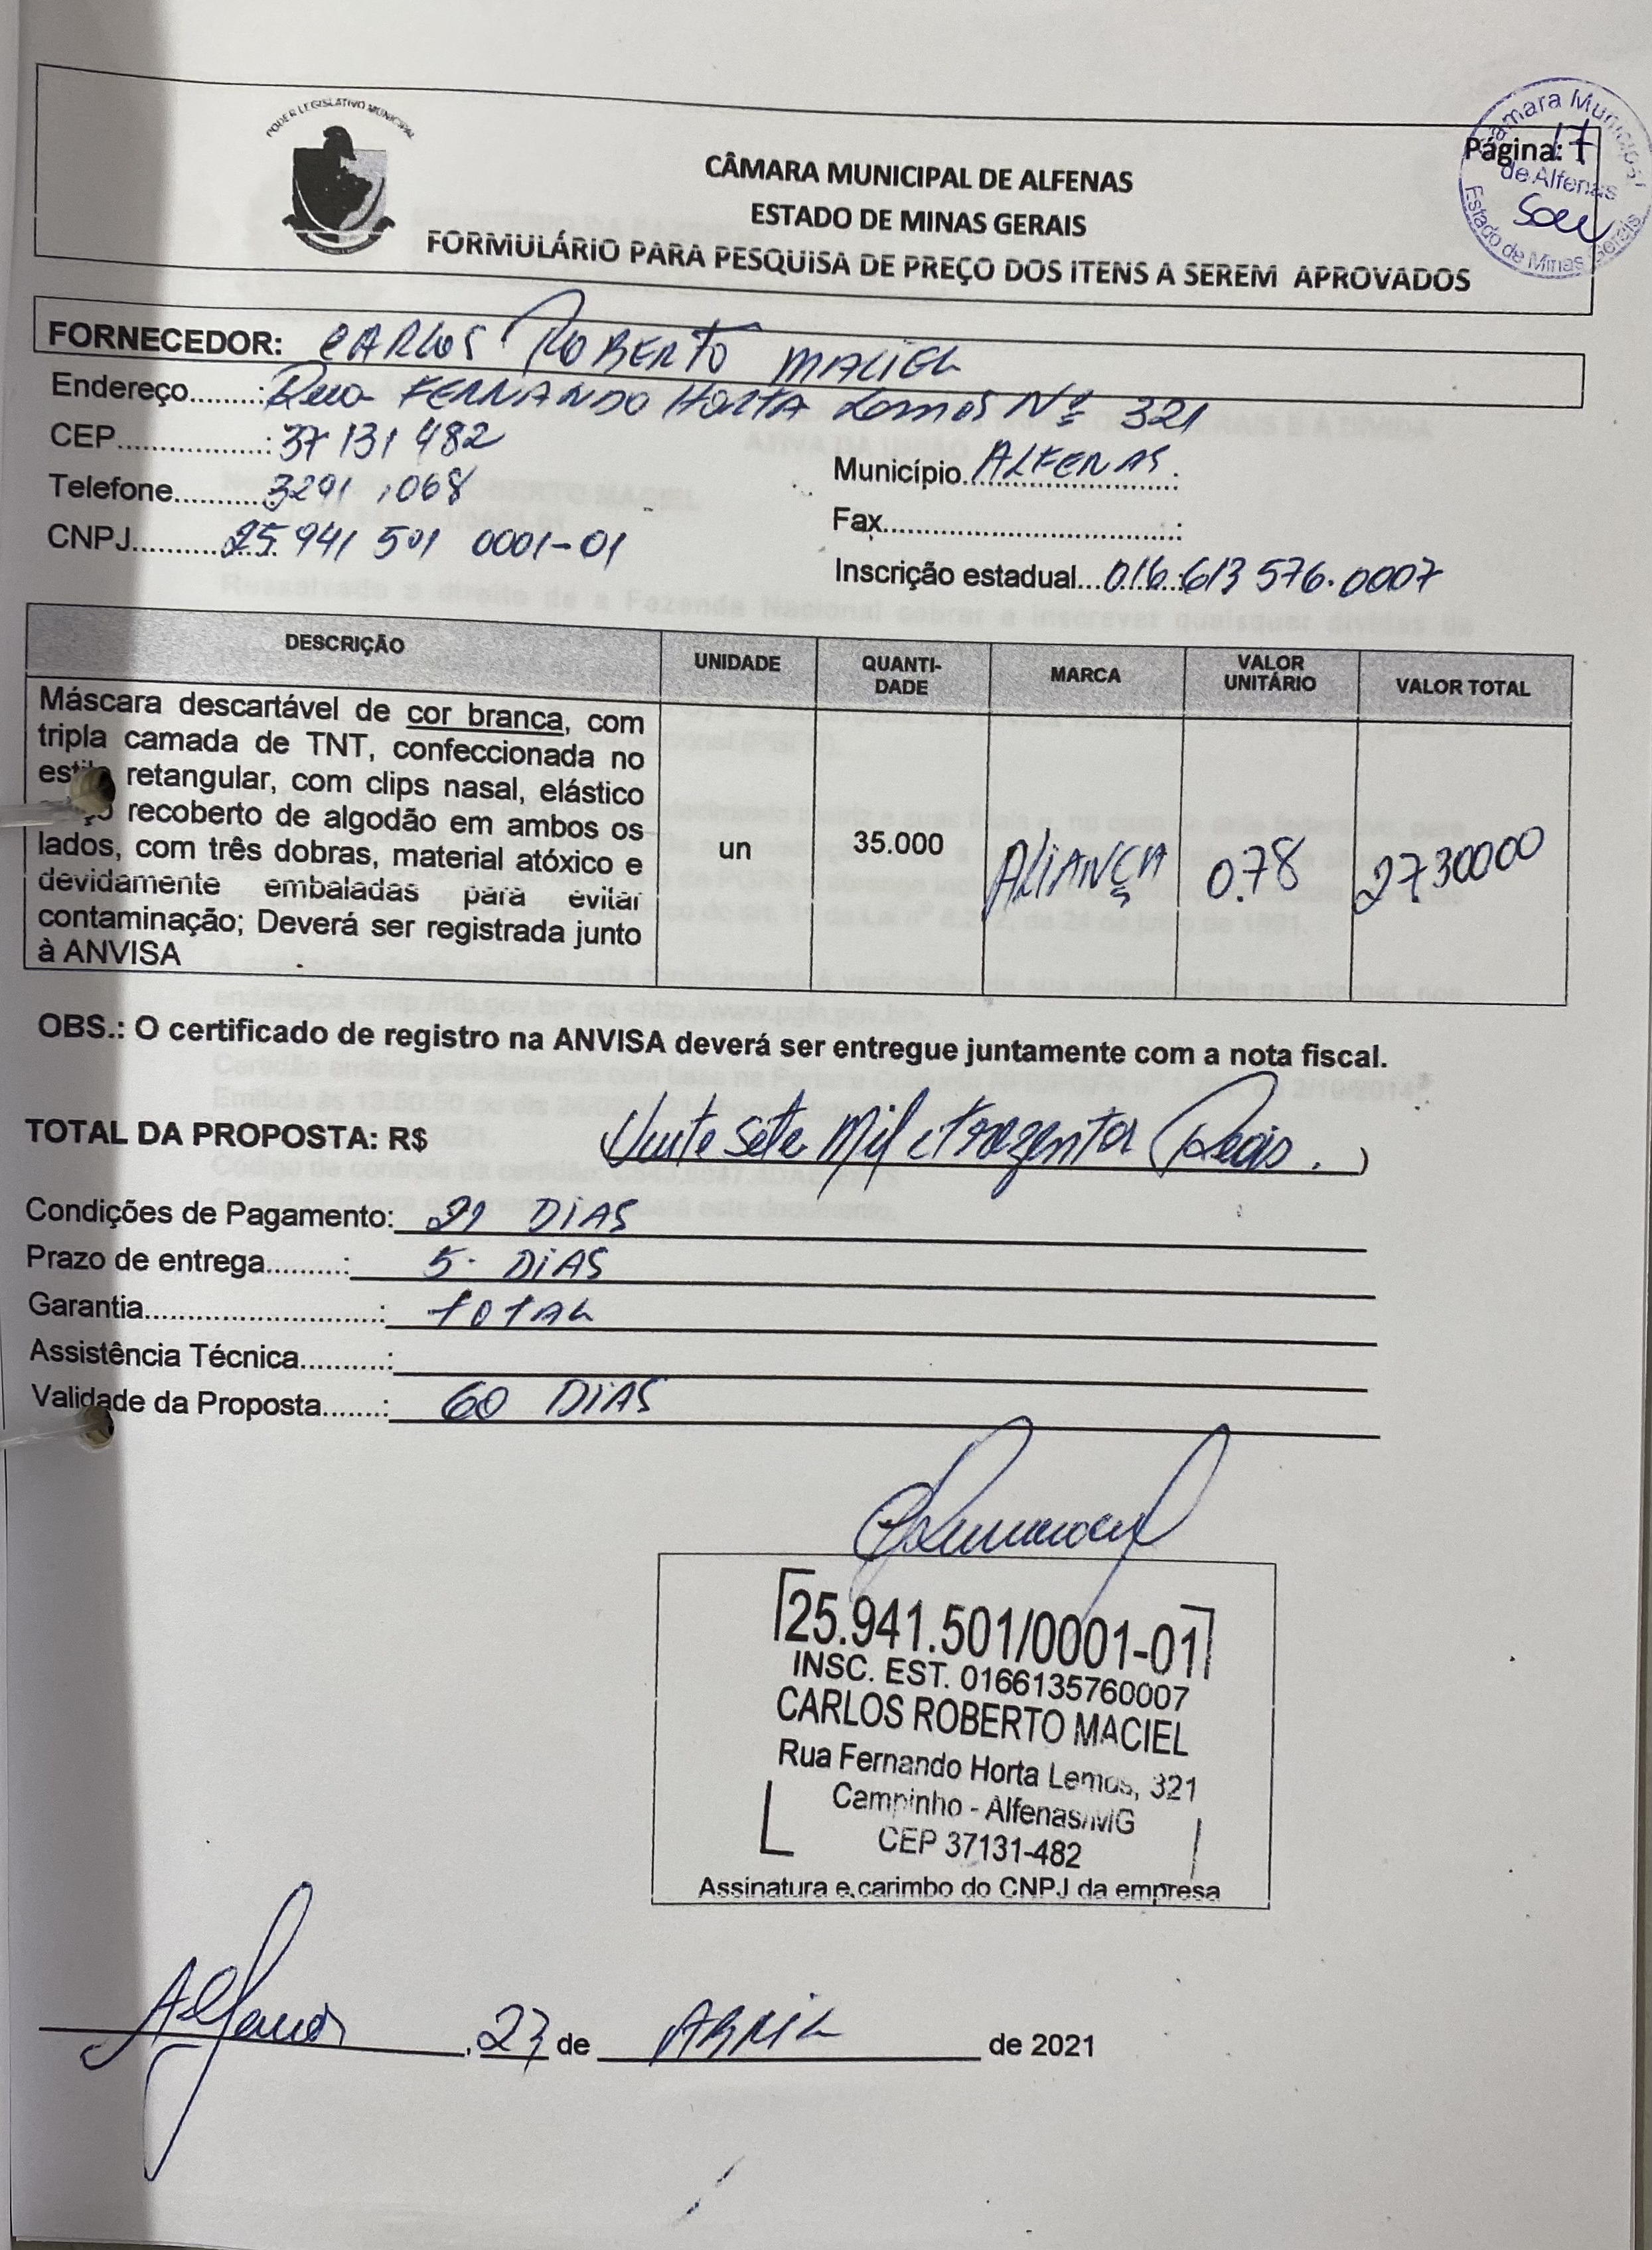 PODER LEGISLATIVO MUNICIPAL
CÂMARA MUNICIPAL DE ALFENAS
ESTADO DE MINAS GERAIS
FORMULÁRIO PARA PESQUISA DE PREÇO DOS ITENS A SEREM APROVADOS
Página: 17
Câmara Municipal
de Alfenas
Estado de Minas Gerais
FORNECEDOR: CARLOS ROBERTO MACIEL
Endereço........: Rua FERNANDO HORTA Lemos Nº 321
CEP..................: 37131482
Município ALFENAS
Telefone.......... 3291 1068
Fax...................................:
CNPJ............ 25 941 501 0001-01
Inscrição estadual... 016.613 576.0007
DESCRIÇÃO UNIDADE QUANTI-DADE MARCA VALOR UNITÁRIO VALOR TOTAL
Máscara descartável de cor branca, com
tripla camada de TNT, confeccionada no
retangular, com clips nasal, elástico
recoberto de algodão em ambos os
lados, com três dobras, material atóxico e
devidamente embaladas para evitar
contaminação; Deverá ser registrada junto
à ANVISA
un 35.000 ALIANÇA 0.78 27.30000
OBS.: O certificado de registro na ANVISA deverá ser entregue juntamente com a nota fiscal.
TOTAL DA PROPOSTA: R$ Vinte sete Mil e trezentos Reais.
Condições de Pagamento: 21 DIAS
Prazo de entrega.........: 5. DIAS
Garantia...........................: TOTAL
Assistência Técnica..........:
Validade da Proposta.......: 60 DIAS
25.941.501/0001-01
INSC. EST. 0166135760007
CARLOS ROBERTO MACIEL
Rua Fernando Horta Lemos, 321
Campinho - Alfenas/MG
CEP 37131-482
Assinatura e carimbo do CNPJ da empresa
Alfenas, 23 de ABRIL de 2021